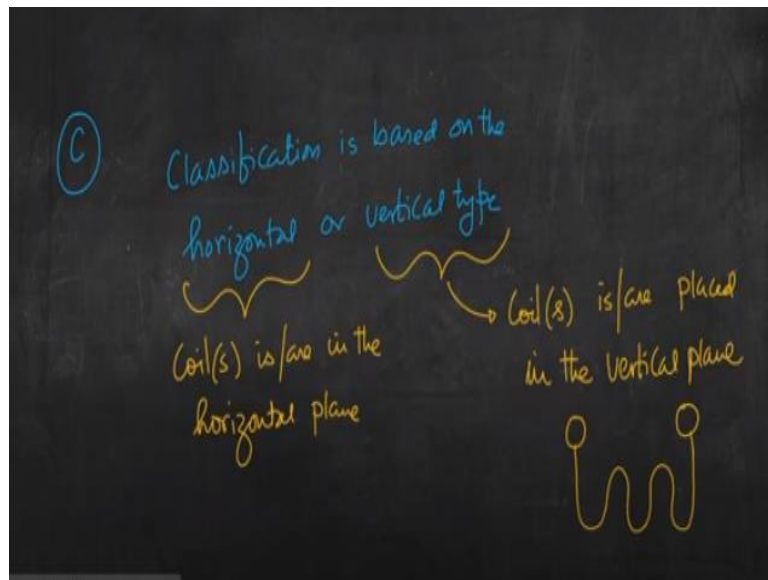 C
Classification is based on the
horizontal or vertical type
Coil(s) is/are in the
horizontal plane
Coil(s) is/are placed
in the vertical plane